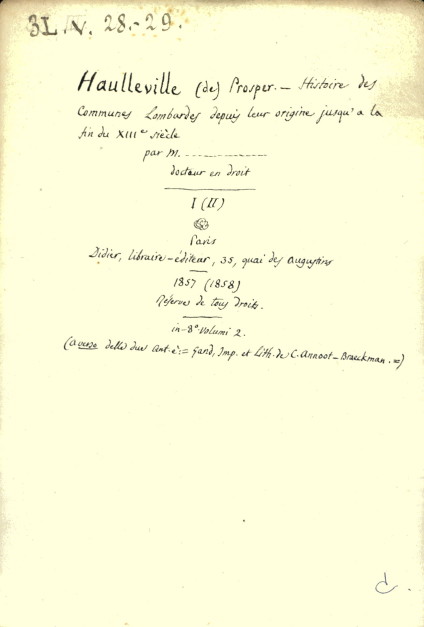 3L. IV. 28.-29.
Haulleville (de) Prosper. — Histoire des
Communes Lombardes depuis leur origine jusqu'a la
fin du XIIIe siècle
par M. --------------
docteur en droit
I (II)
Paris
Didier, libraire-éditeur, 35, quai des Augustins
1857 (1858)
Réserve de tous droits.
in-8° Volumi 2.
(a verso delle due Ant.e := Gand, Imp. et Lith. de C. Annoot-Braeckman. =)
d.